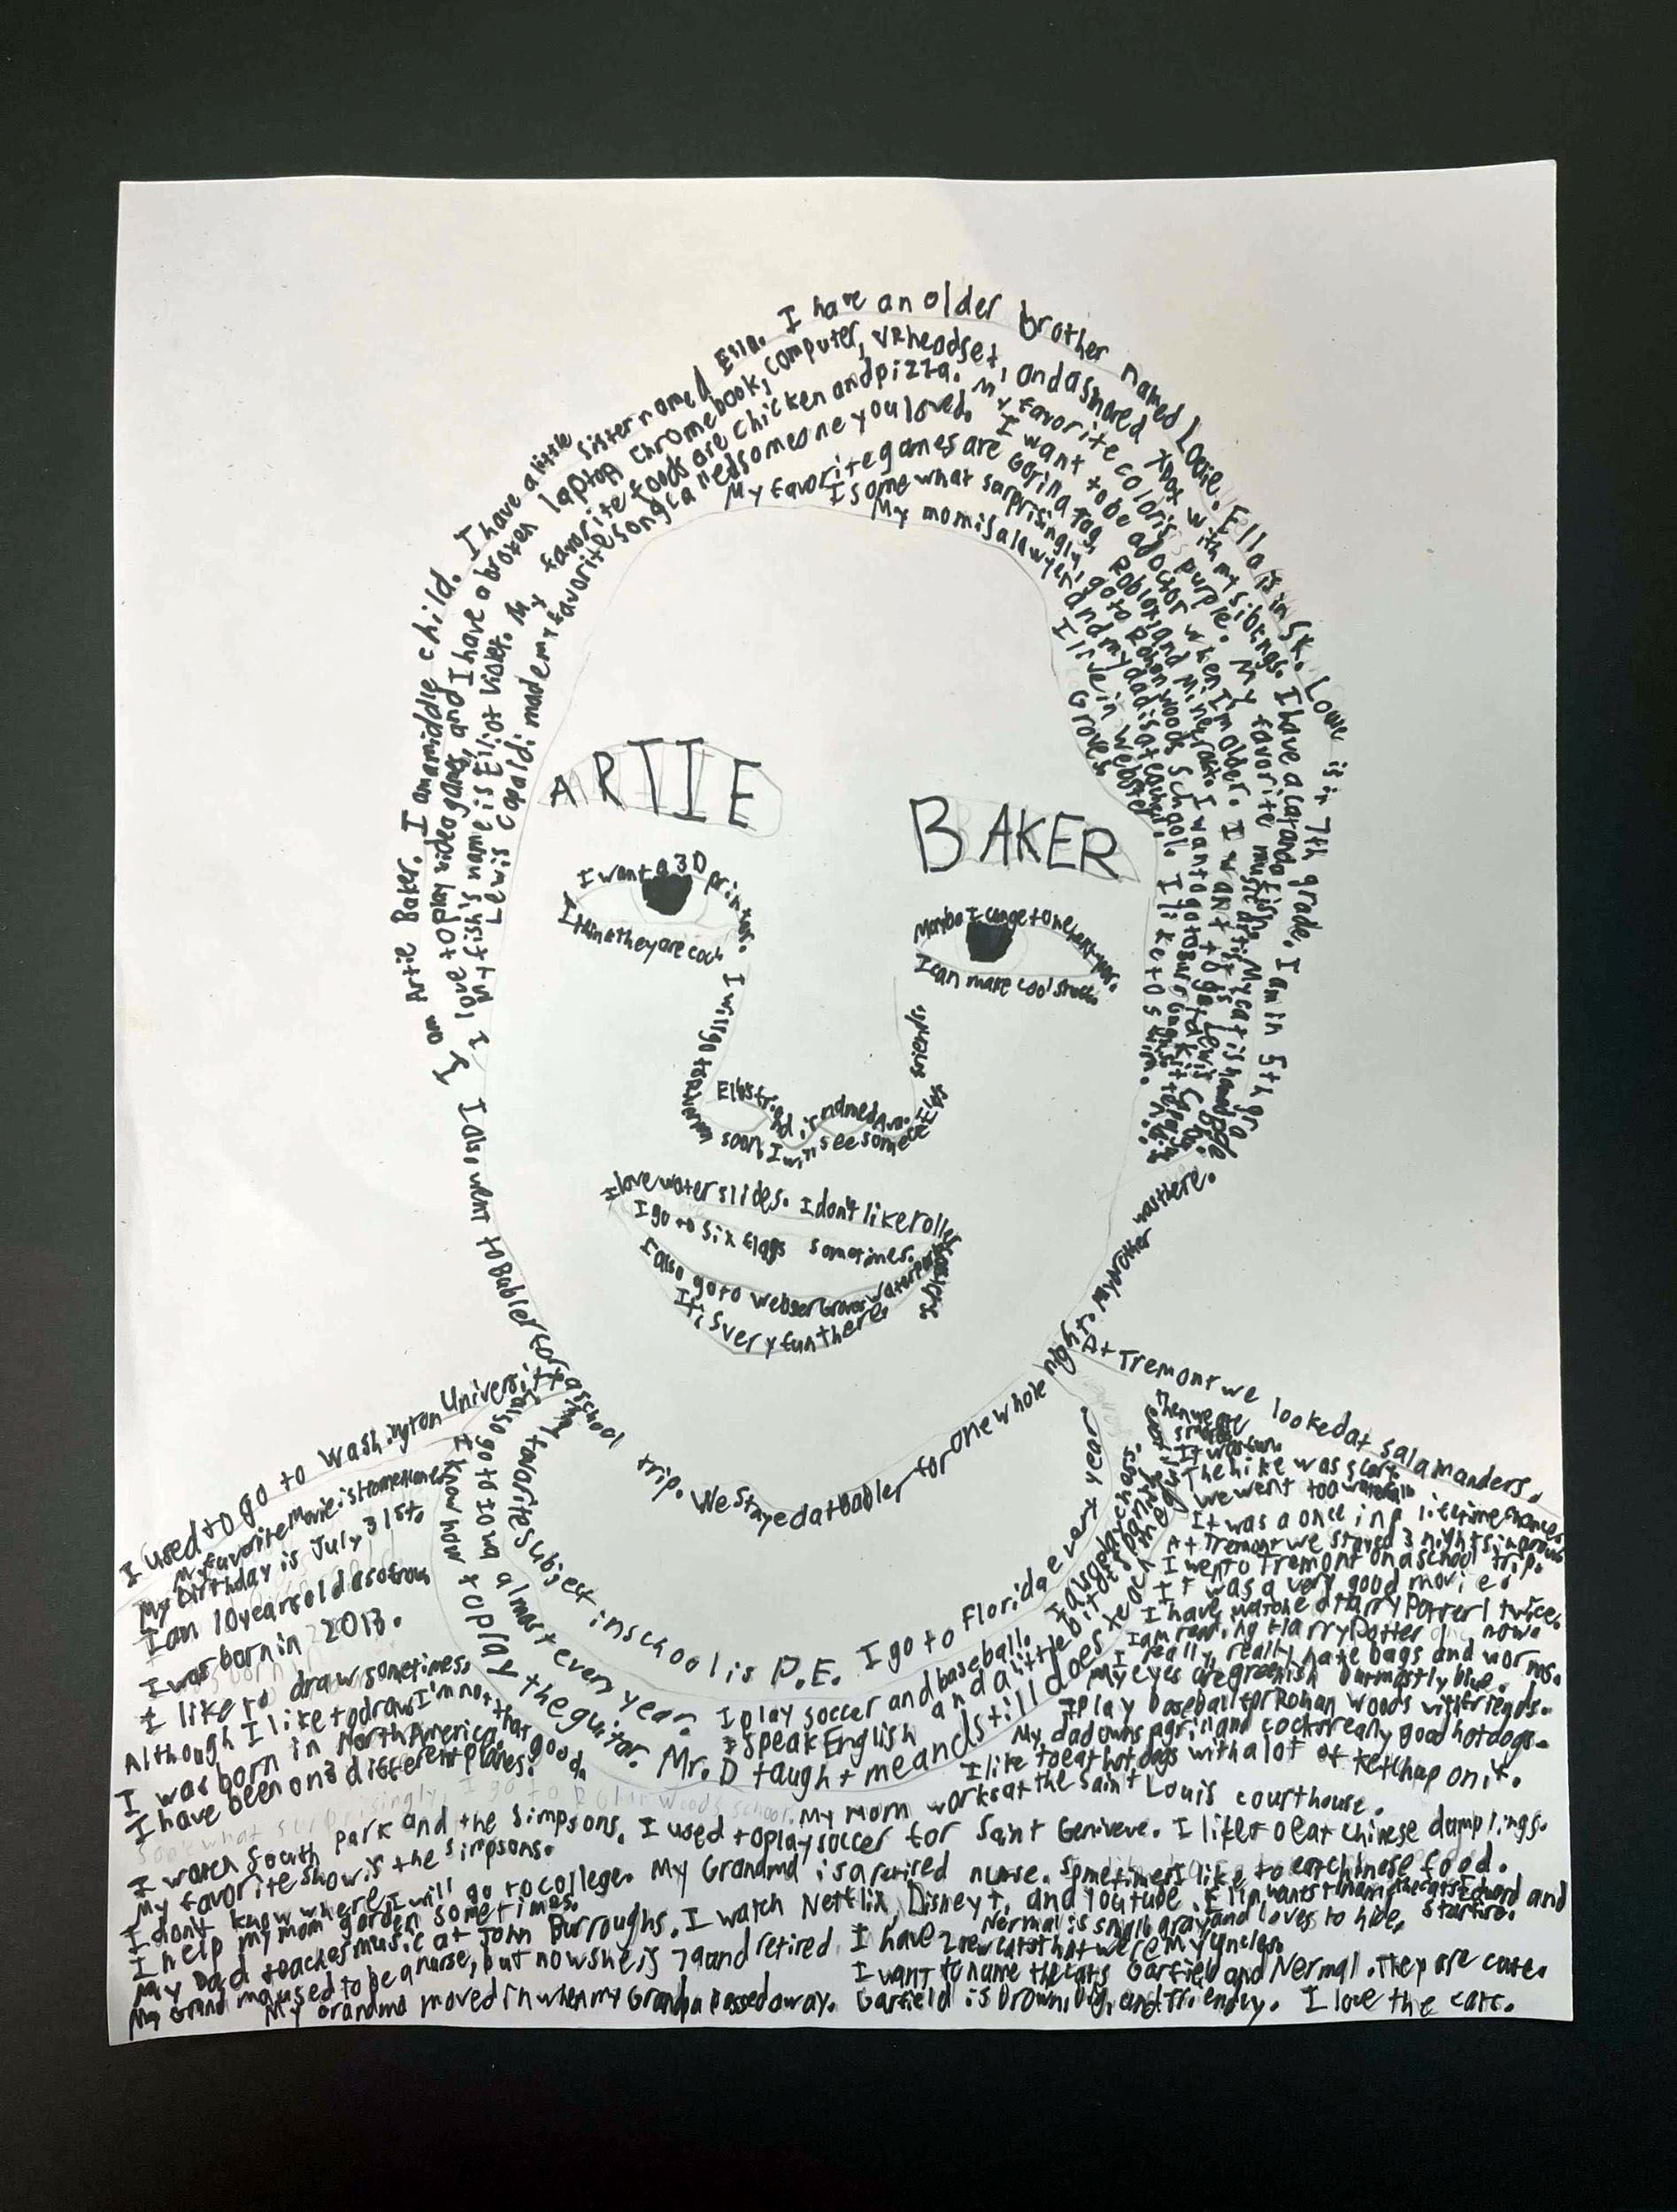 I am Artie Baker. I am a middle child. I have a little sister named Ella. I have an older brother named Louie. Ella is in SK. Louie is in 7th grade. I am in 5th gra
I love to play video games, and I have a broken laptop, chromebook, computer, VR headset, and a shared xbox with my siblings. I have a cat and a fish. My cat is named
My fish's name is Elliot Violet. My favorite foods are chicken and pizza. My favorite color is purple. My favorite music artist is Lewis
Lewis Capaldi made my favorite song called someone you loved. I want to be a doctor when I'm older. I want to get
My favorite games are Gorilla Tag, Roblox, and Minecraft. I want to go to Burroughs
I somewhat surprisingly, go to Rohan Woods School. I like to swim.
My mom is a lawyer and my dad is a teacher.
I live in Webster
Groves.
ARTIE
BAKER
I want a 3D printer.
I think they are cool
Maybe I can get one
I can make cool
I will go to
soon. I will see some
Ella's friend is named Ava.
I love water slides. I don't like roller
I go to six flags sometimes.
I also go to Webster Groves Water
It is very fun there
I also went to Babler for a school trip. We stayed at Babler for one whole night. My brother was there.
I used to go to Washington University
My favorite Movie is
My birthday is July, 31st.
I am 10 years old as of
I was born in 2013.
I like to draw sometimes.
Although I like to draw I'm not that good.
I was born in North America.
I have been on different planes.
My favorite subject in school is P.E. I go to Florida every year
I also go to Iowa almost every year. I play soccer and baseball.
I know how to play the guitar. Mr. D taught me and still does teach me
I speak English and a little bit of
At Tremont we looked at salamanders.
Then we ate
It was fun.
The hike was
we went to
It was a once in a lifetime
At Tremont we stayed 3 nights in
I went to Tremont on a school trip.
It was a very good movie.
I have watched Harry Potter 1 twice.
I am reading Harry Potter now.
I really, really hate bugs and worms.
My eyes are greenish but mostly blue.
I play baseball for Rohan Woods with friends.
My dad owns a gril and cooks really good hotdogs.
I like to eat hot dogs with a lot of ketchup on it.
somewhat surprisingly, I go to Rohan Woods school. My Mom works at the Saint Louis courthouse.
I watch South Park and the Simpsons. I used to play soccer for Saint Geniveve. I like to eat chinese dumplings.
My favorite show is the Simpsons.
I don't know where I will go to college. My Grandma is a retired nurse. Sometimes I like to eat chinese food.
I help my mom garden sometimes. I watch Netflix, Disney+, and Youtube.
My Dad teaches music at John Burroughs. Normal is small gray and loves to hide.
My Grandma used to be a nurse, but now she is 79 and retired I have 2 new cats that were my uncles.
I want to name the cats Garfield and Normal. They are cute.
My Grandma moved in when my Grandpa passed away. Garfield is brown, big, and friendly. I love the cats.